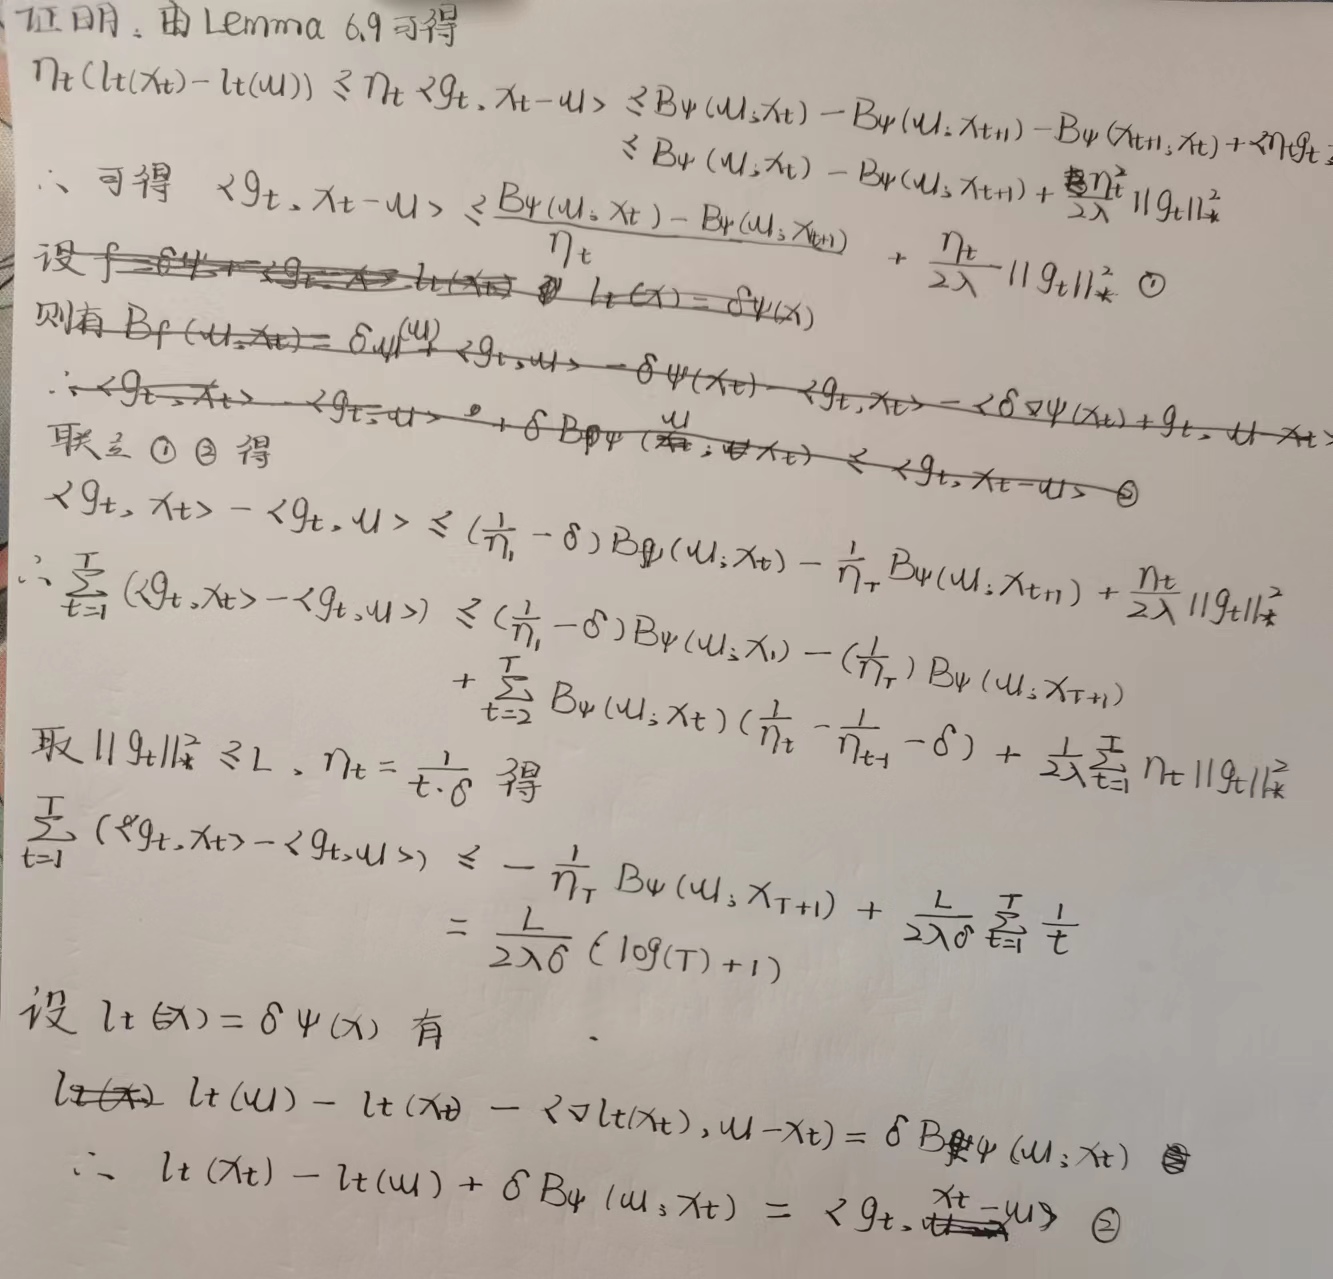 证明：由 Lemma 6.9 可得
ηt(lt(xt)-lt(u)) ≤ ηt<gt, xt-u> ≤ Bψ(u;xt) - Bψ(u;xt+1) - Bψ(xt+1;xt) + <ηtgt,
≤ Bψ(u;xt) - Bψ(u;xt+1) + ηt²/2λ ||gt||²*
∴ 可得 <gt, xt-u> ≤ (Bψ(u;xt) - Bψ(u;xt+1))/ηt + ηt/2λ ||gt||²* ①
设 f = δψ + <gt, x> lt(xt) lt(x) = δψ(x)
则有 Bf(u;xt) = δψ(u) + <gt,u> - δψ(xt) - <gt,xt> - <δ∇ψ(xt)+gt, u-xt>
∴ <gt,xt> - <gt,u> + δBψ(u;xt) ≤ <gt, xt-u> ②
联立 ① ② 得
<gt, xt> - <gt, u> ≤ (1/η1 - δ)Bψ(u;xt) - 1/ηT Bψ(u;xt+1) + ηt/2λ ||gt||²*
∴ Σ_{t=1}^{T} (<gt,xt> - <gt,u>) ≤ (1/η1 - δ)Bψ(u;x1) - (1/ηT)Bψ(u;xT+1)
+ Σ_{t=2}^{T} Bψ(u;xt)(1/ηt - 1/ηt-1 - δ) + 1/2λ Σ_{t=1}^{T} ηt||gt||²*
取 ||gt||²* ≤ L, ηt = 1/(t·δ) 得
Σ_{t=1}^{T} (<gt,xt> - <gt,u>) ≤ - 1/ηT Bψ(u;xT+1) + L/2λδ Σ_{t=1}^{T} 1/t
= L/2λδ (log(T)+1)
设 lt(x) = δψ(x) 有
lt(x) lt(u) - lt(xt) - <∇lt(xt), u-xt) = δBψ(u;xt)
∴ lt(xt) - lt(u) + δBψ(u;xt) = <gt, xt-u> ②